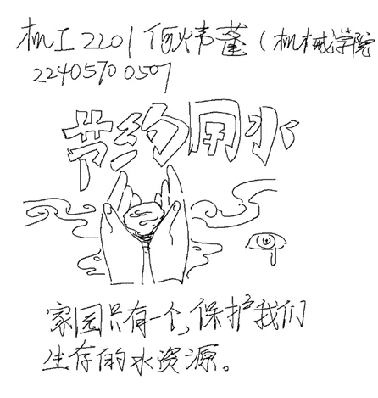 机工2201 何炜蓬(机械学院
2240570 0507
节约用水
家园只有一个,保护我们
生存的水资源。